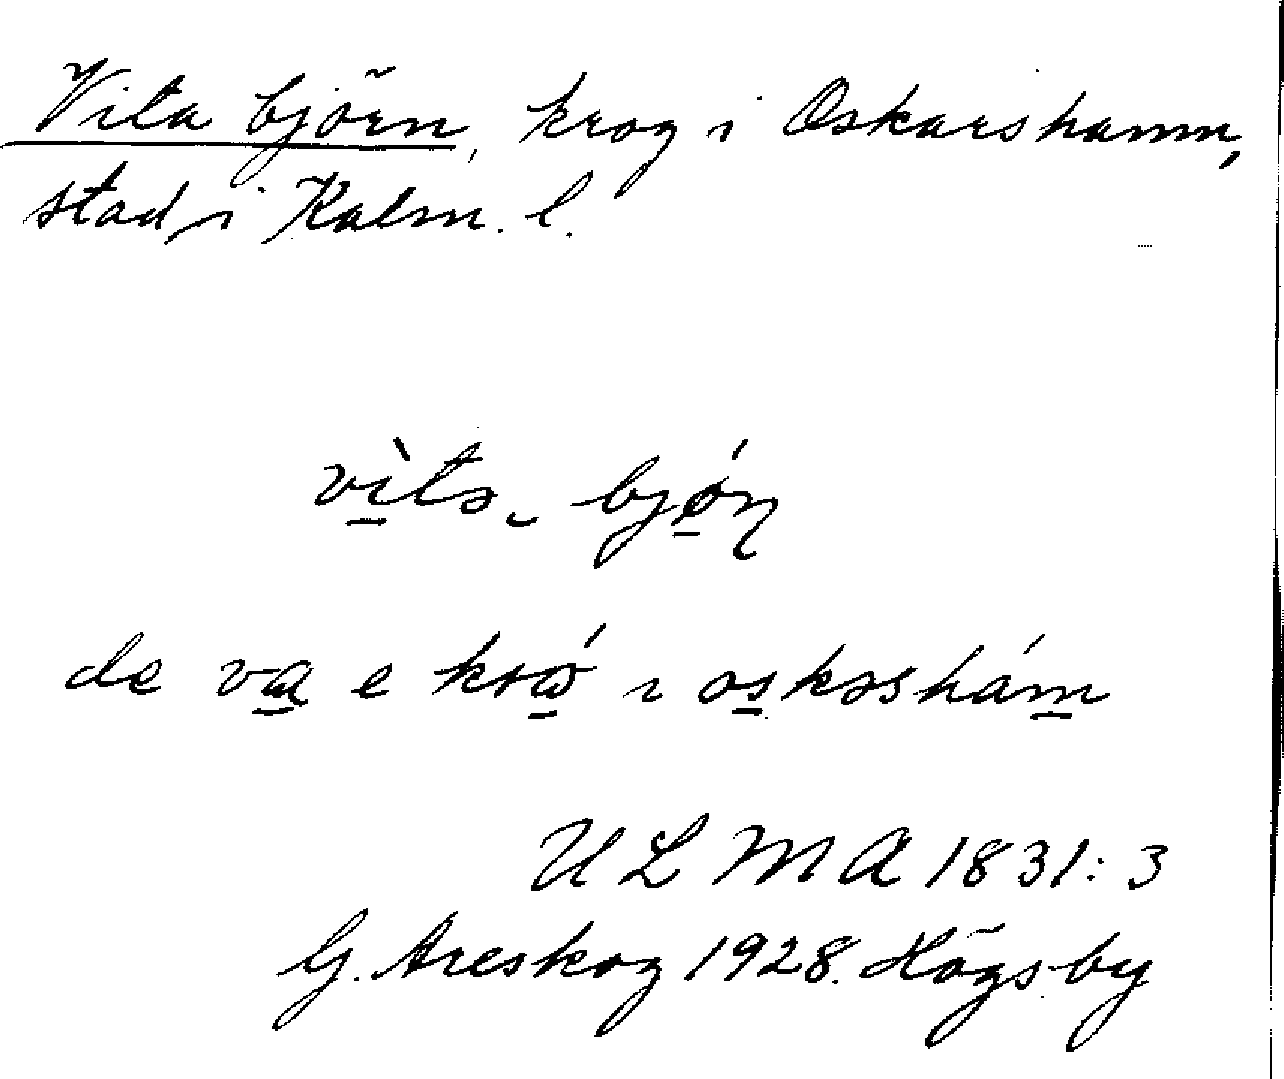 Vita björn, krog i Oskarshamn,
stad i Kalm. l.
vìtə ̮ bjǿɳ
de va e krɷ́ ı oskəshám
ULMA 1831:3
G. Areskog 1928. Högsby